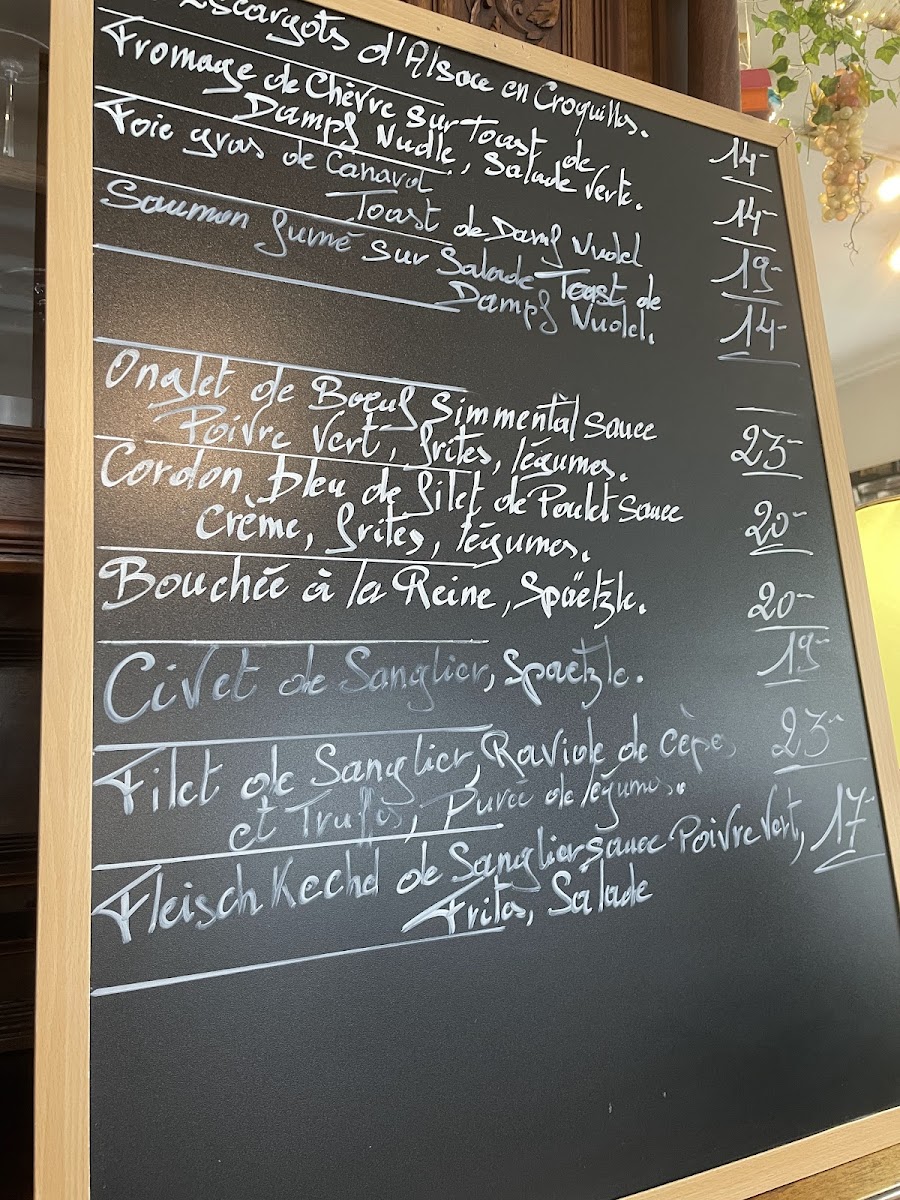 Escargots d'Alsace en Croquilles. 14-
Fromage de Chèvre sur Toast de
Dampf Nudle, Salade Verte. 14-
Foie gras de Canard
Toast de Dampf Nudel 19-
Saumon fumé sur Salade Toast de
Dampf Nudel. 14-
Onglet de Boeuf Simmental Sauce
Poivre Vert, frites, légumes. 23-
Cordon bleu de filet de Poulet Sauce
Crème, frites, légumes. 20-
Bouchée à la Reine, Spaëtzle. 20-
Civet de Sanglier, Spaetzle. 19-
Filet de Sanglier, Raviole de Cèpes 23-
et Truffes, Purée de légumes.
FleischKechel de Sanglier sauce Poivre Vert, 17-
Frites, Salade